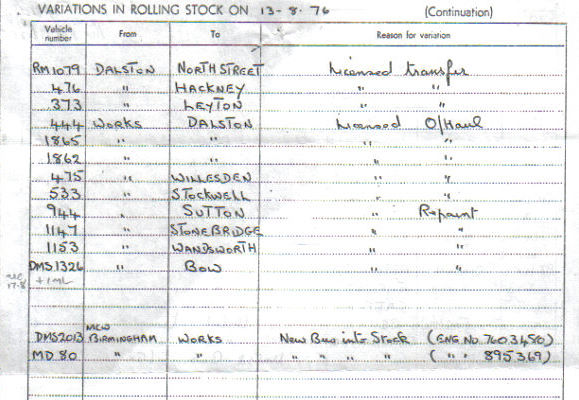 VARIATIONS IN ROLLING STOCK ON 13-8-76 (Continuation)
Vehicle number From To Reason for variation
RM1079 DALSTON NORTH STREET Licensed transfer
476 " HACKNEY " "
373 " LEYTON " "
444 WORKS DALSTON Licensed O/Haul
1865 " " " "
1862 " " " "
475 " WILLESDEN " "
533 " STOCKWELL " "
944 " SUTTON " Repaint
1147 " STONEBRIDGE " "
1153 " WANDSWORTH " "
DMS1326 " BOW " "
17-8
DMS2013 MCW BIRMINGHAM WORKS New Bus into Stock (ENG No. 7603450)
MD 80 " " " " " " ( " " 895369)